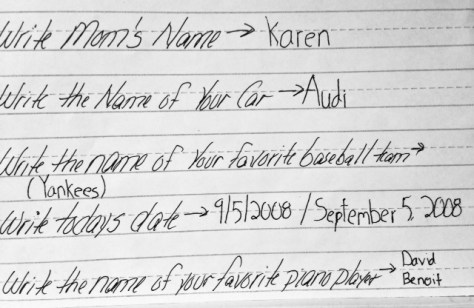 Write Mom's Name → Karen
Write the Name of Your Car → Audi
Write the name of Your favorite baseball team →
(Yankees)
Write todays date → 9/5/2008 / September 5, 2008
Write the name of your favorite piano player → David Benoit